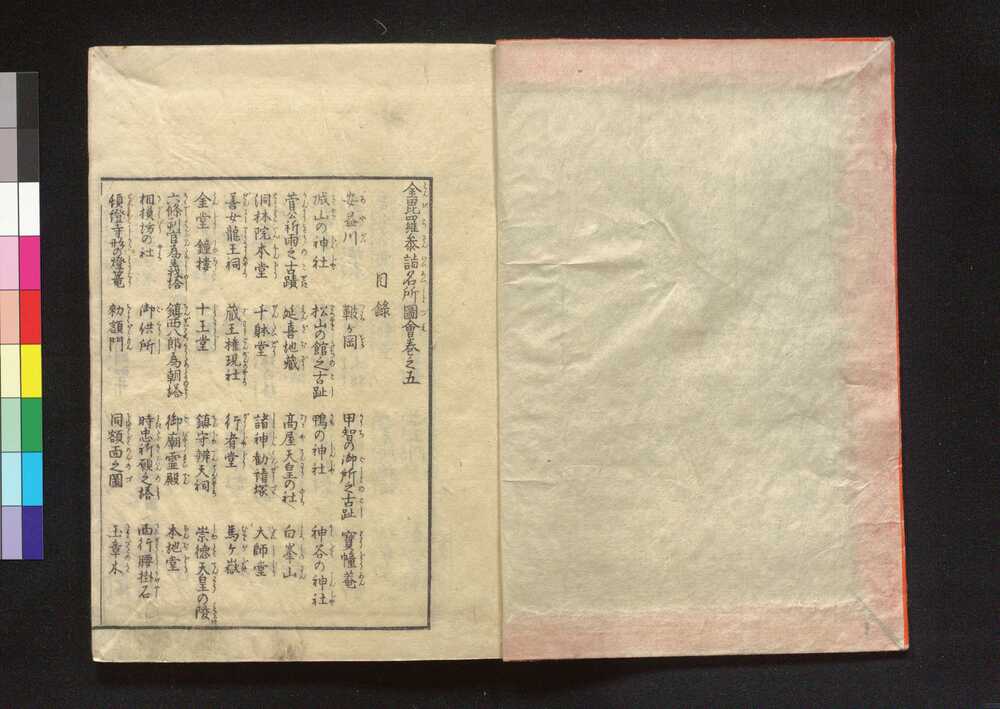 金毘羅參詣名所圖會卷之五
目錄
安益川 鞍ヶ岡 甲智の御所之古趾 寳幢菴
城山の神社 松山の館之古趾 鴨の神社 神谷の神社
菅公祈雨之古蹟 延喜地藏 髙屋天皇の社 白峯山
洞林院本堂 千躰堂 諸神勧請塚 大師堂
善女龍王祠 蔵王權現社 行者堂 馬ヶ嶽
金堂 鐘樓 十王堂 鎮守辨天祠 崇德天皇の陵
六條判官為義塔 鎮西八郎為朝塔 御廟霊殿 本地堂
相模坊の社 御供所 時忠祈願之塔 西行腰掛石
頓證寺形の燈篭 勅額門 同額面之圖 玉章木